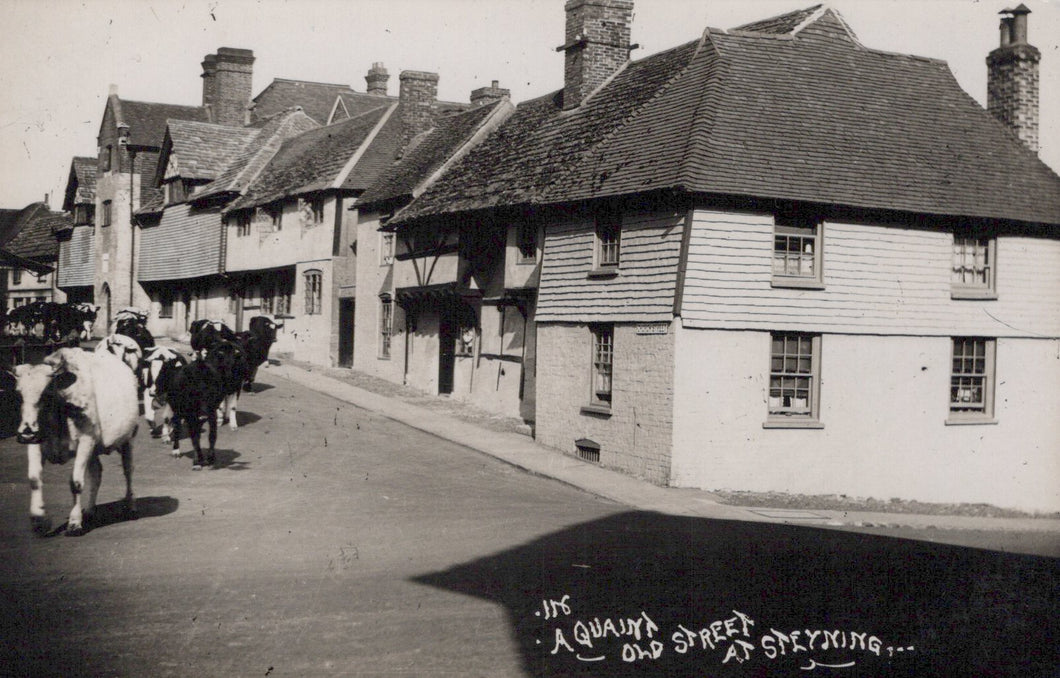 .116
. A QUAINT
OLD STREET
AT STEYNING,...